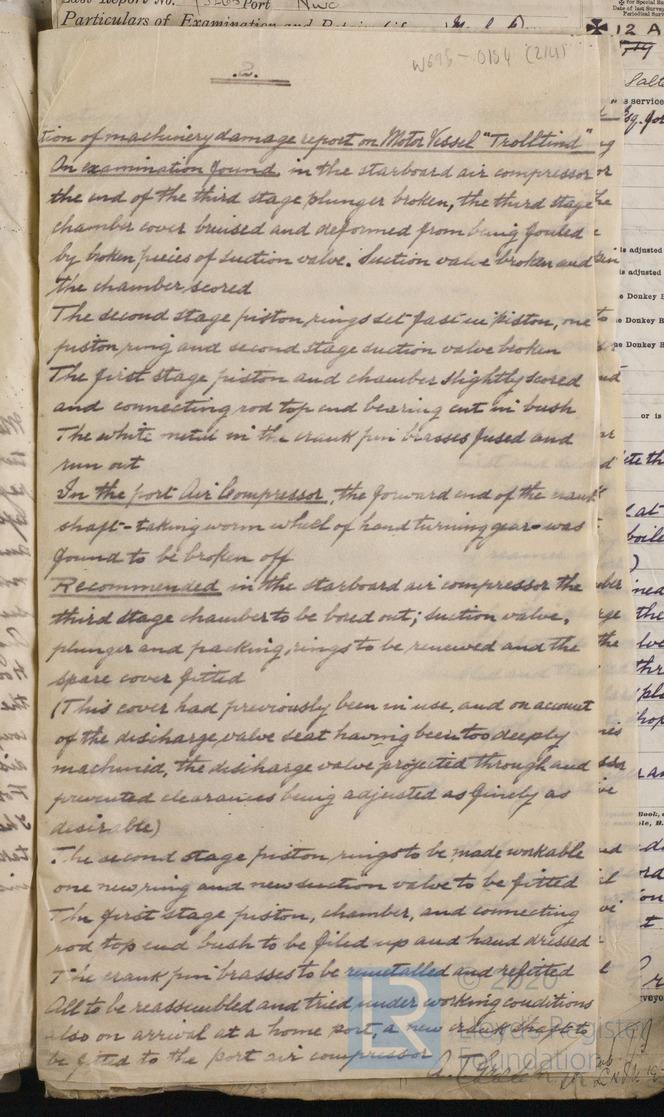 Port Nwc
Particulars of Examination and
W695-0154 (2/4)
.2.
tion of machinery damage report on Motor Vessel "Trolltind"
On examination found in the starboard air compressor
the end of the third stage plunger broken, the third stage
chamber cover bruised and deformed from being fouled
by broken pieces of suction valve. Suction valve broken and
the chamber scored
The second stage piston rings set fast in piston, one
piston ring and second stage suction valve broken
The first stage piston and chamber slightly scored
and connecting rod top end bearing cut in bush
The white metal in the crank pin brasses fused and
run out
In the port Air Compressor, the forward end of the crank
shaft - taking worm wheel of hand turning gear - was
found to be broken off
Recommended in the starboard air compressor the
third stage chamber to be bored out; suction valve,
plunger and packing rings to be renewed and the
spare cover fitted
(This cover had previously been in use, and on account
of the discharge valve seat having been too deeply
machined, the discharge valve projected through and
prevented clearances being adjusted as finely as
desirable)
The second stage piston rings to be made workable
one new ring and new suction valve to be fitted
The first stage piston, chamber, and connecting
rod top end bush to be filed up and hand dressed
The crank pin brasses to be remetalled and refitted
All to be reassembled and tried under working conditions
also on arrival at a home port, a new crank shaft to
be fitted to the port air compressor
© 2020
Lloyd's Register
Foundation
12 A
is adjusted
is adjusted
Donkey B
Donkey B
Donkey B
or is